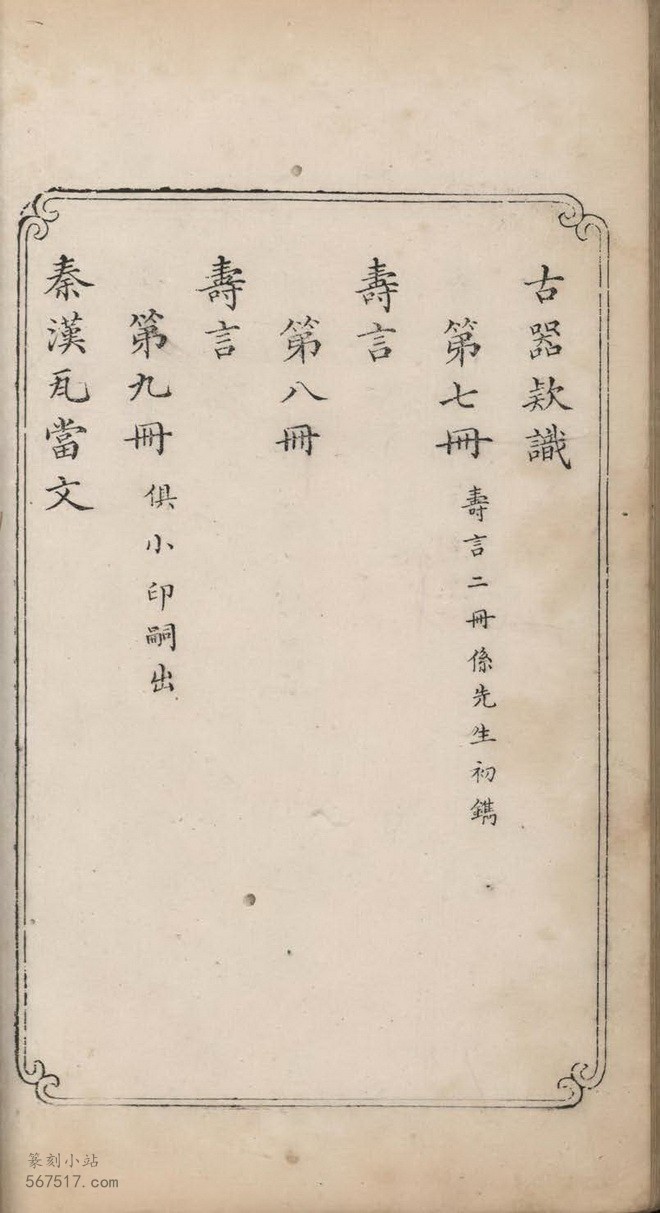 古器欵識
第七冊 壽言二冊係先生初鐫
壽言
第八冊
壽言
第九冊 俱小印嗣出
秦漢瓦當文
篆刻小站
567517.com